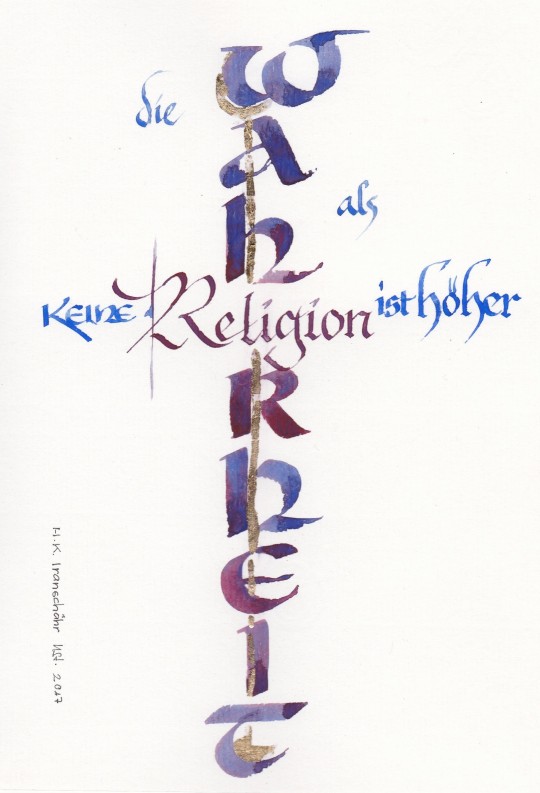 KEINE Religion ist höher
als
die
WAhRhEIT
H.K. Iranschähr hst. 2017